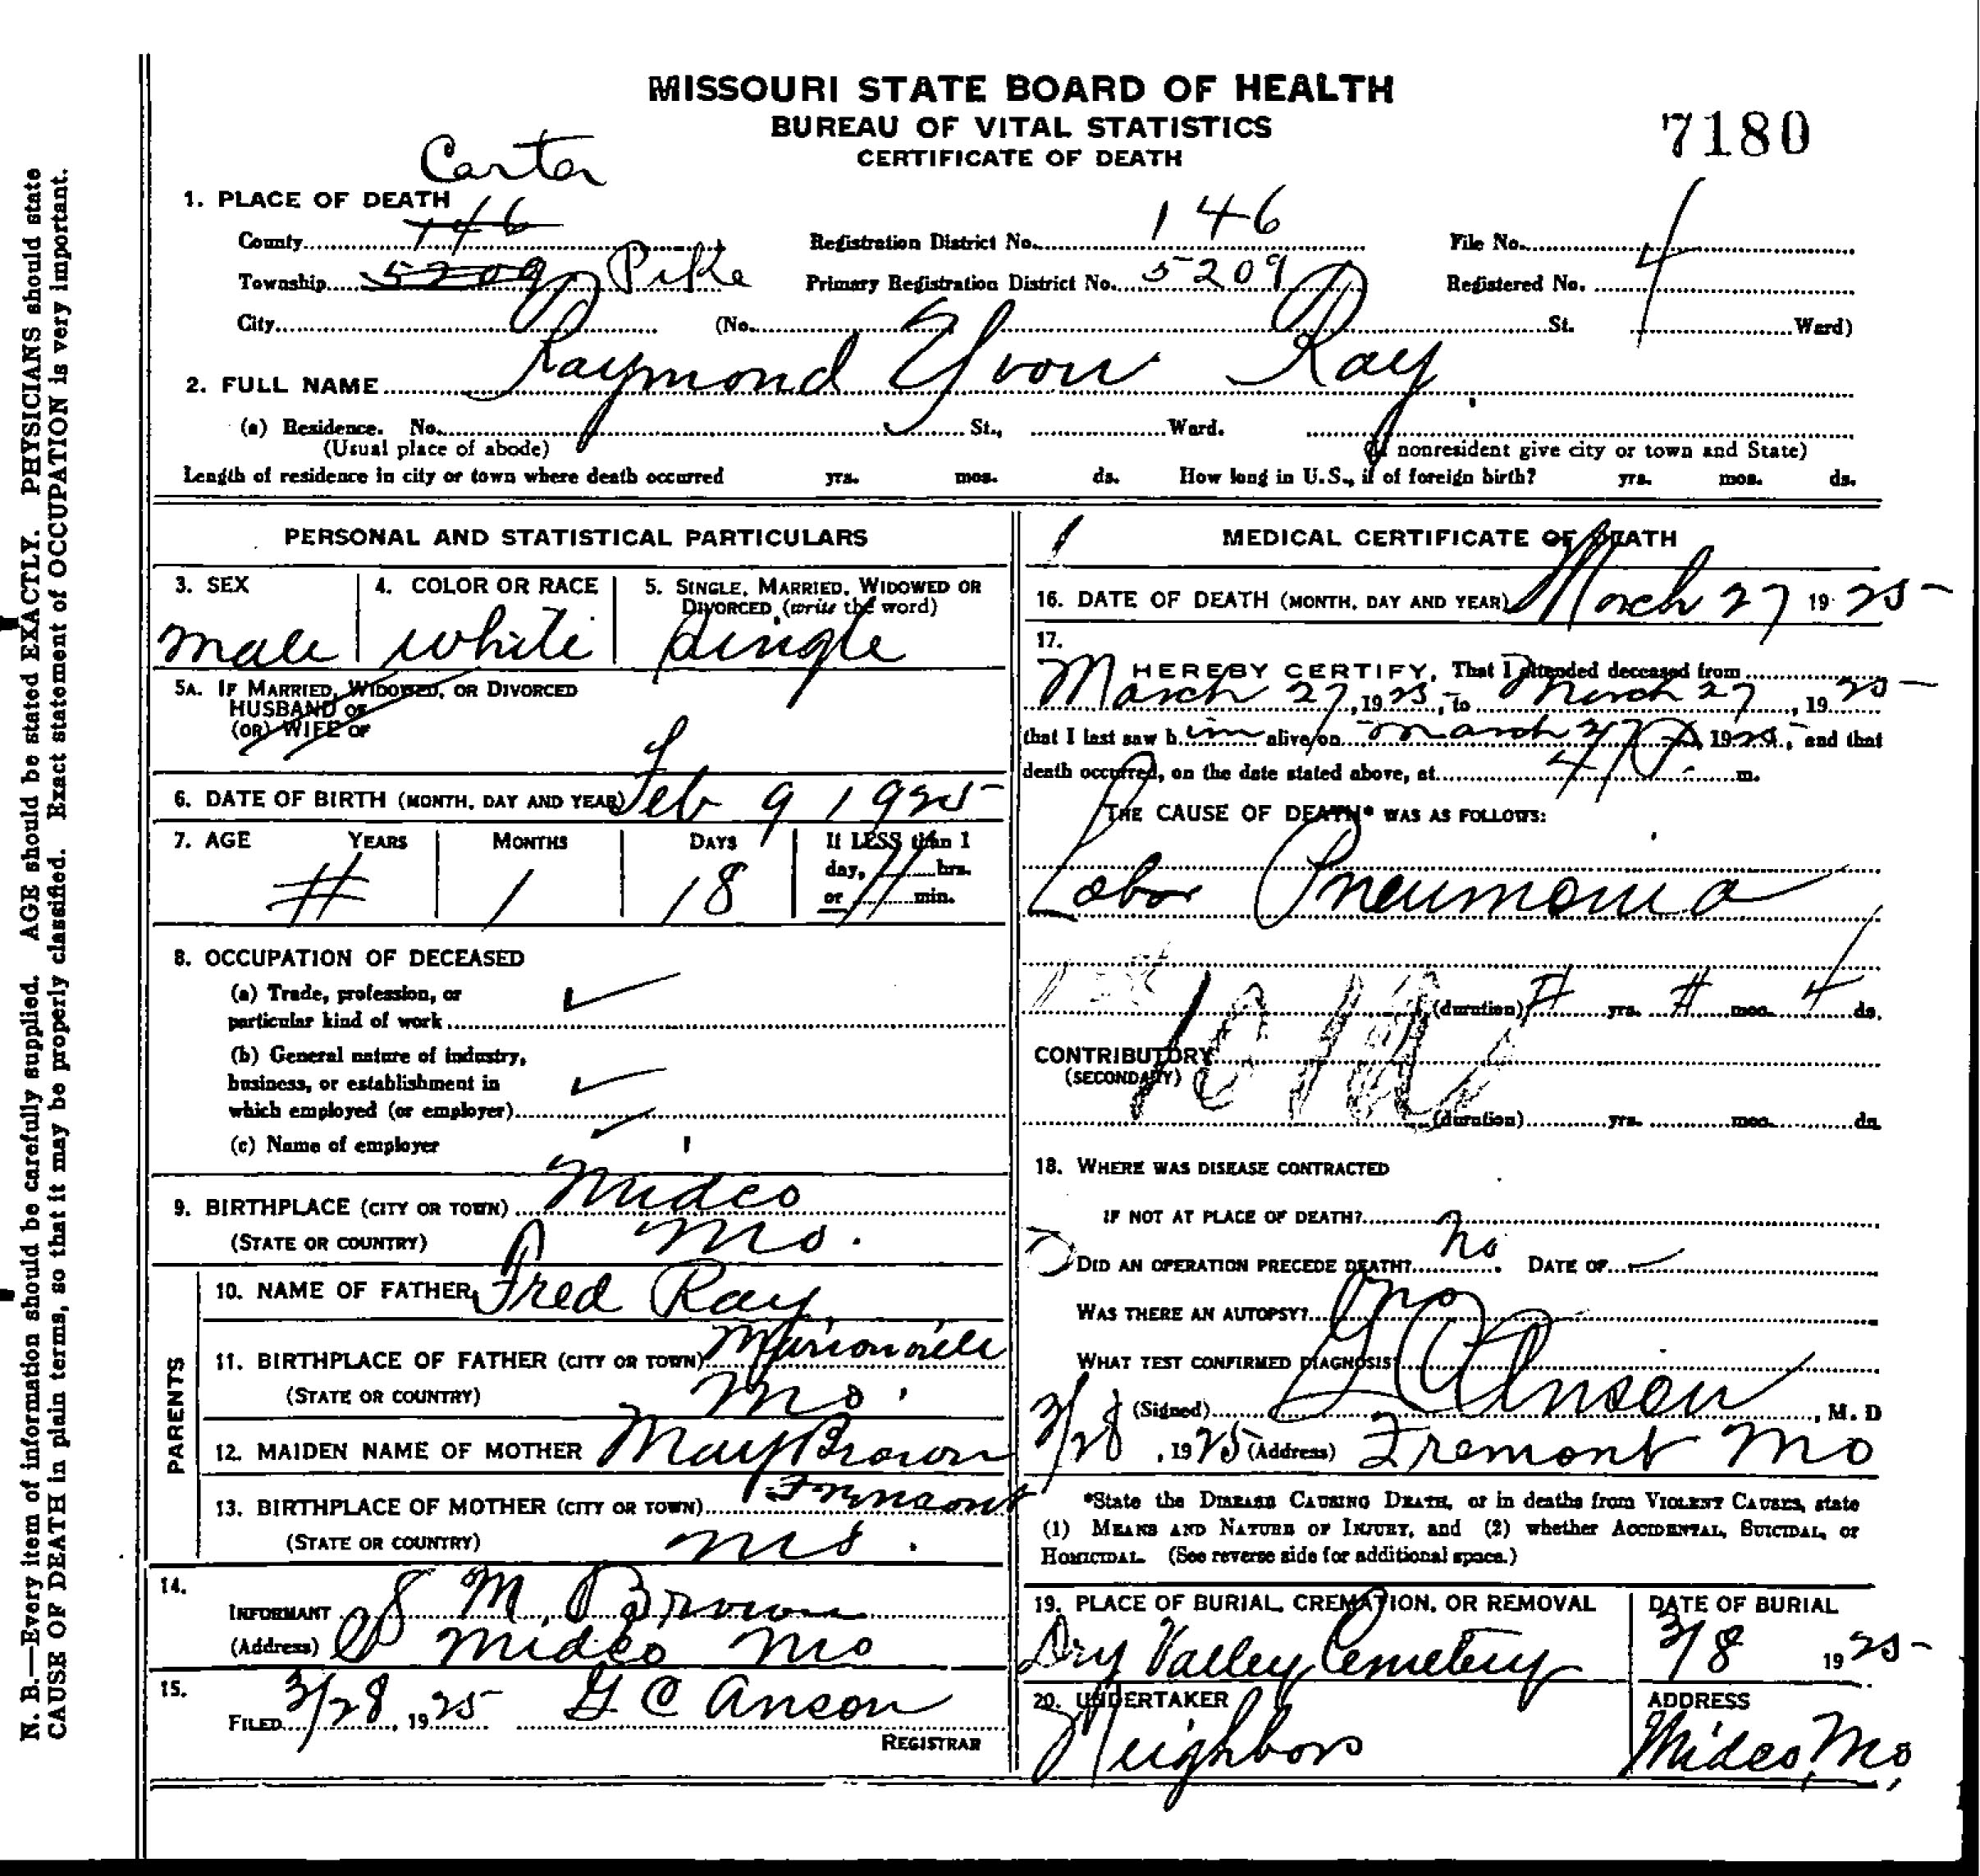 MISSOURI STATE BOARD OF HEALTH
BUREAU OF VITAL STATISTICS
CERTIFICATE OF DEATH
7180
Carter
1. PLACE OF DEATH
County 146 Registration District No. 146 File No.
Township 5209 Pike Primary Registration District No. 5209 Registered No. 4
City (No. St. Ward)
2. FULL NAME Raymond Yvon Ray
(a) Residence. No. St., Ward.
(Usual place of abode) (If nonresident give city or town and State)
Length of residence in city or town where death occurred yrs. mos. ds. How long in U.S., if of foreign birth? yrs. mos. ds.
PERSONAL AND STATISTICAL PARTICULARS
3. SEX 4. COLOR OR RACE 5. SINGLE, MARRIED, WIDOWED OR
DIVORCED (write the word)
male white single
5A. IF MARRIED, WIDOWED, OR DIVORCED
HUSBAND OF
(OR) WIFE OF
6. DATE OF BIRTH (MONTH, DAY AND YEAR) Feb 9 1925
7. AGE YEARS MONTHS DAYS If LESS than 1
day, hrs.
or min.
# 1 18
8. OCCUPATION OF DECEASED
(a) Trade, profession, or
particular kind of work
(b) General nature of industry,
business, or establishment in
which employed (or employer)
(c) Name of employer
9. BIRTHPLACE (CITY OR TOWN) Midco
(STATE OR COUNTRY) Mo.
PARENTS
10. NAME OF FATHER Fred Ray
11. BIRTHPLACE OF FATHER (CITY OR TOWN)
(STATE OR COUNTRY) Mo.
12. MAIDEN NAME OF MOTHER May Brown
13. BIRTHPLACE OF MOTHER (CITY OR TOWN)
(STATE OR COUNTRY) Mo.
14.
INFORMANT M. Brown
(Address) Midco Mo
15.
FILED 3/28, 1925 G C Anson
REGISTRAR
1
MEDICAL CERTIFICATE OF DEATH
16. DATE OF DEATH (MONTH, DAY AND YEAR) March 27 1925
17.
HEREBY CERTIFY, That I attended deceased from
March 27, 1925, to March 27, 1925
that I last saw him alive on March 27, 1925, and that
death occurred, on the date stated above, at 4 P. m.
THE CAUSE OF DEATH* WAS AS FOLLOWS:
Lobar Pneumonia
(duration) # yrs. # mos. 4 ds.
CONTRIBUTORY
(SECONDARY)
(duration) yrs. mos. ds.
18. WHERE WAS DISEASE CONTRACTED
IF NOT AT PLACE OF DEATH?
DID AN OPERATION PRECEDE DEATH? no DATE OF
WAS THERE AN AUTOPSY? no
WHAT TEST CONFIRMED DIAGNOSIS?
(Signed) G C Anson, M. D
3/28, 1925 (Address) Fremont Mo
*State the DISEASE CAUSING DEATH, or in deaths from VIOLENT CAUSES, state
(1) MEANS AND NATURE OF INJURY, and (2) whether ACCIDENTAL, SUICIDAL, or
HOMICIDAL. (See reverse side for additional space.)
19. PLACE OF BURIAL, CREMATION, OR REMOVAL DATE OF BURIAL
Dry Valley Cemetery 3/8 1925
20. UNDERTAKER ADDRESS
Neighbors Midco, Mo,
N. B.—Every item of information should be carefully supplied. AGE should be stated EXACTLY. PHYSICIANS should state
CAUSE OF DEATH in plain terms, so that it may be properly classified. Exact statement of OCCUPATION is very important.